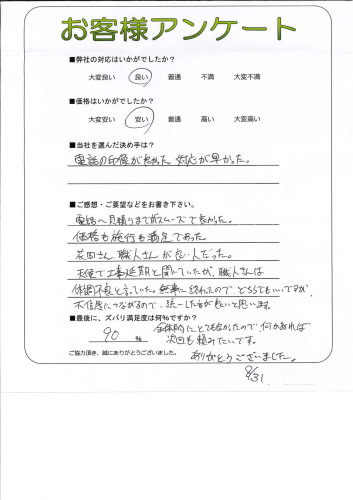 お客様アンケート
■弊社の対応はいかがでしたか？
大変良い 良い 普通 不満 大変不満
■価格はいかがでしたか？
大変安い 安い 普通 高い 大変高い
■当社を選んだ決め手は？
電話の印象が良かった 対応が早かった。
■ご感想・ご要望などをお書き下さい。
電話～見積りまでがスムーズで良かった。
価格も施行も満足であった。
花田さん、職人さんが良い人だった。
天候で工事延期と聞いていたが、職人さんは
体調不良と言っていた。無事に終わったので、どちらでもいいですが、
不信感につながるので、統一した方が良いと思います。
■最後に、ズバリ満足度は何％ですか？
90 ％
全体的にとても良かったので何かあれば
次回も頼みたいです。
ありがとうございました。
ご協力頂き、誠にありがとうございました。
8/31